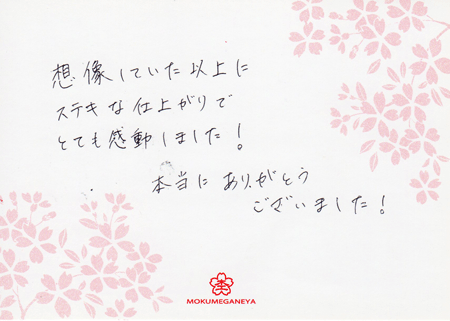 想像していた以上に
ステキな仕上がりで
とても感動しました！
本当にありがとう
ございました！
MOKUMEGANEYA